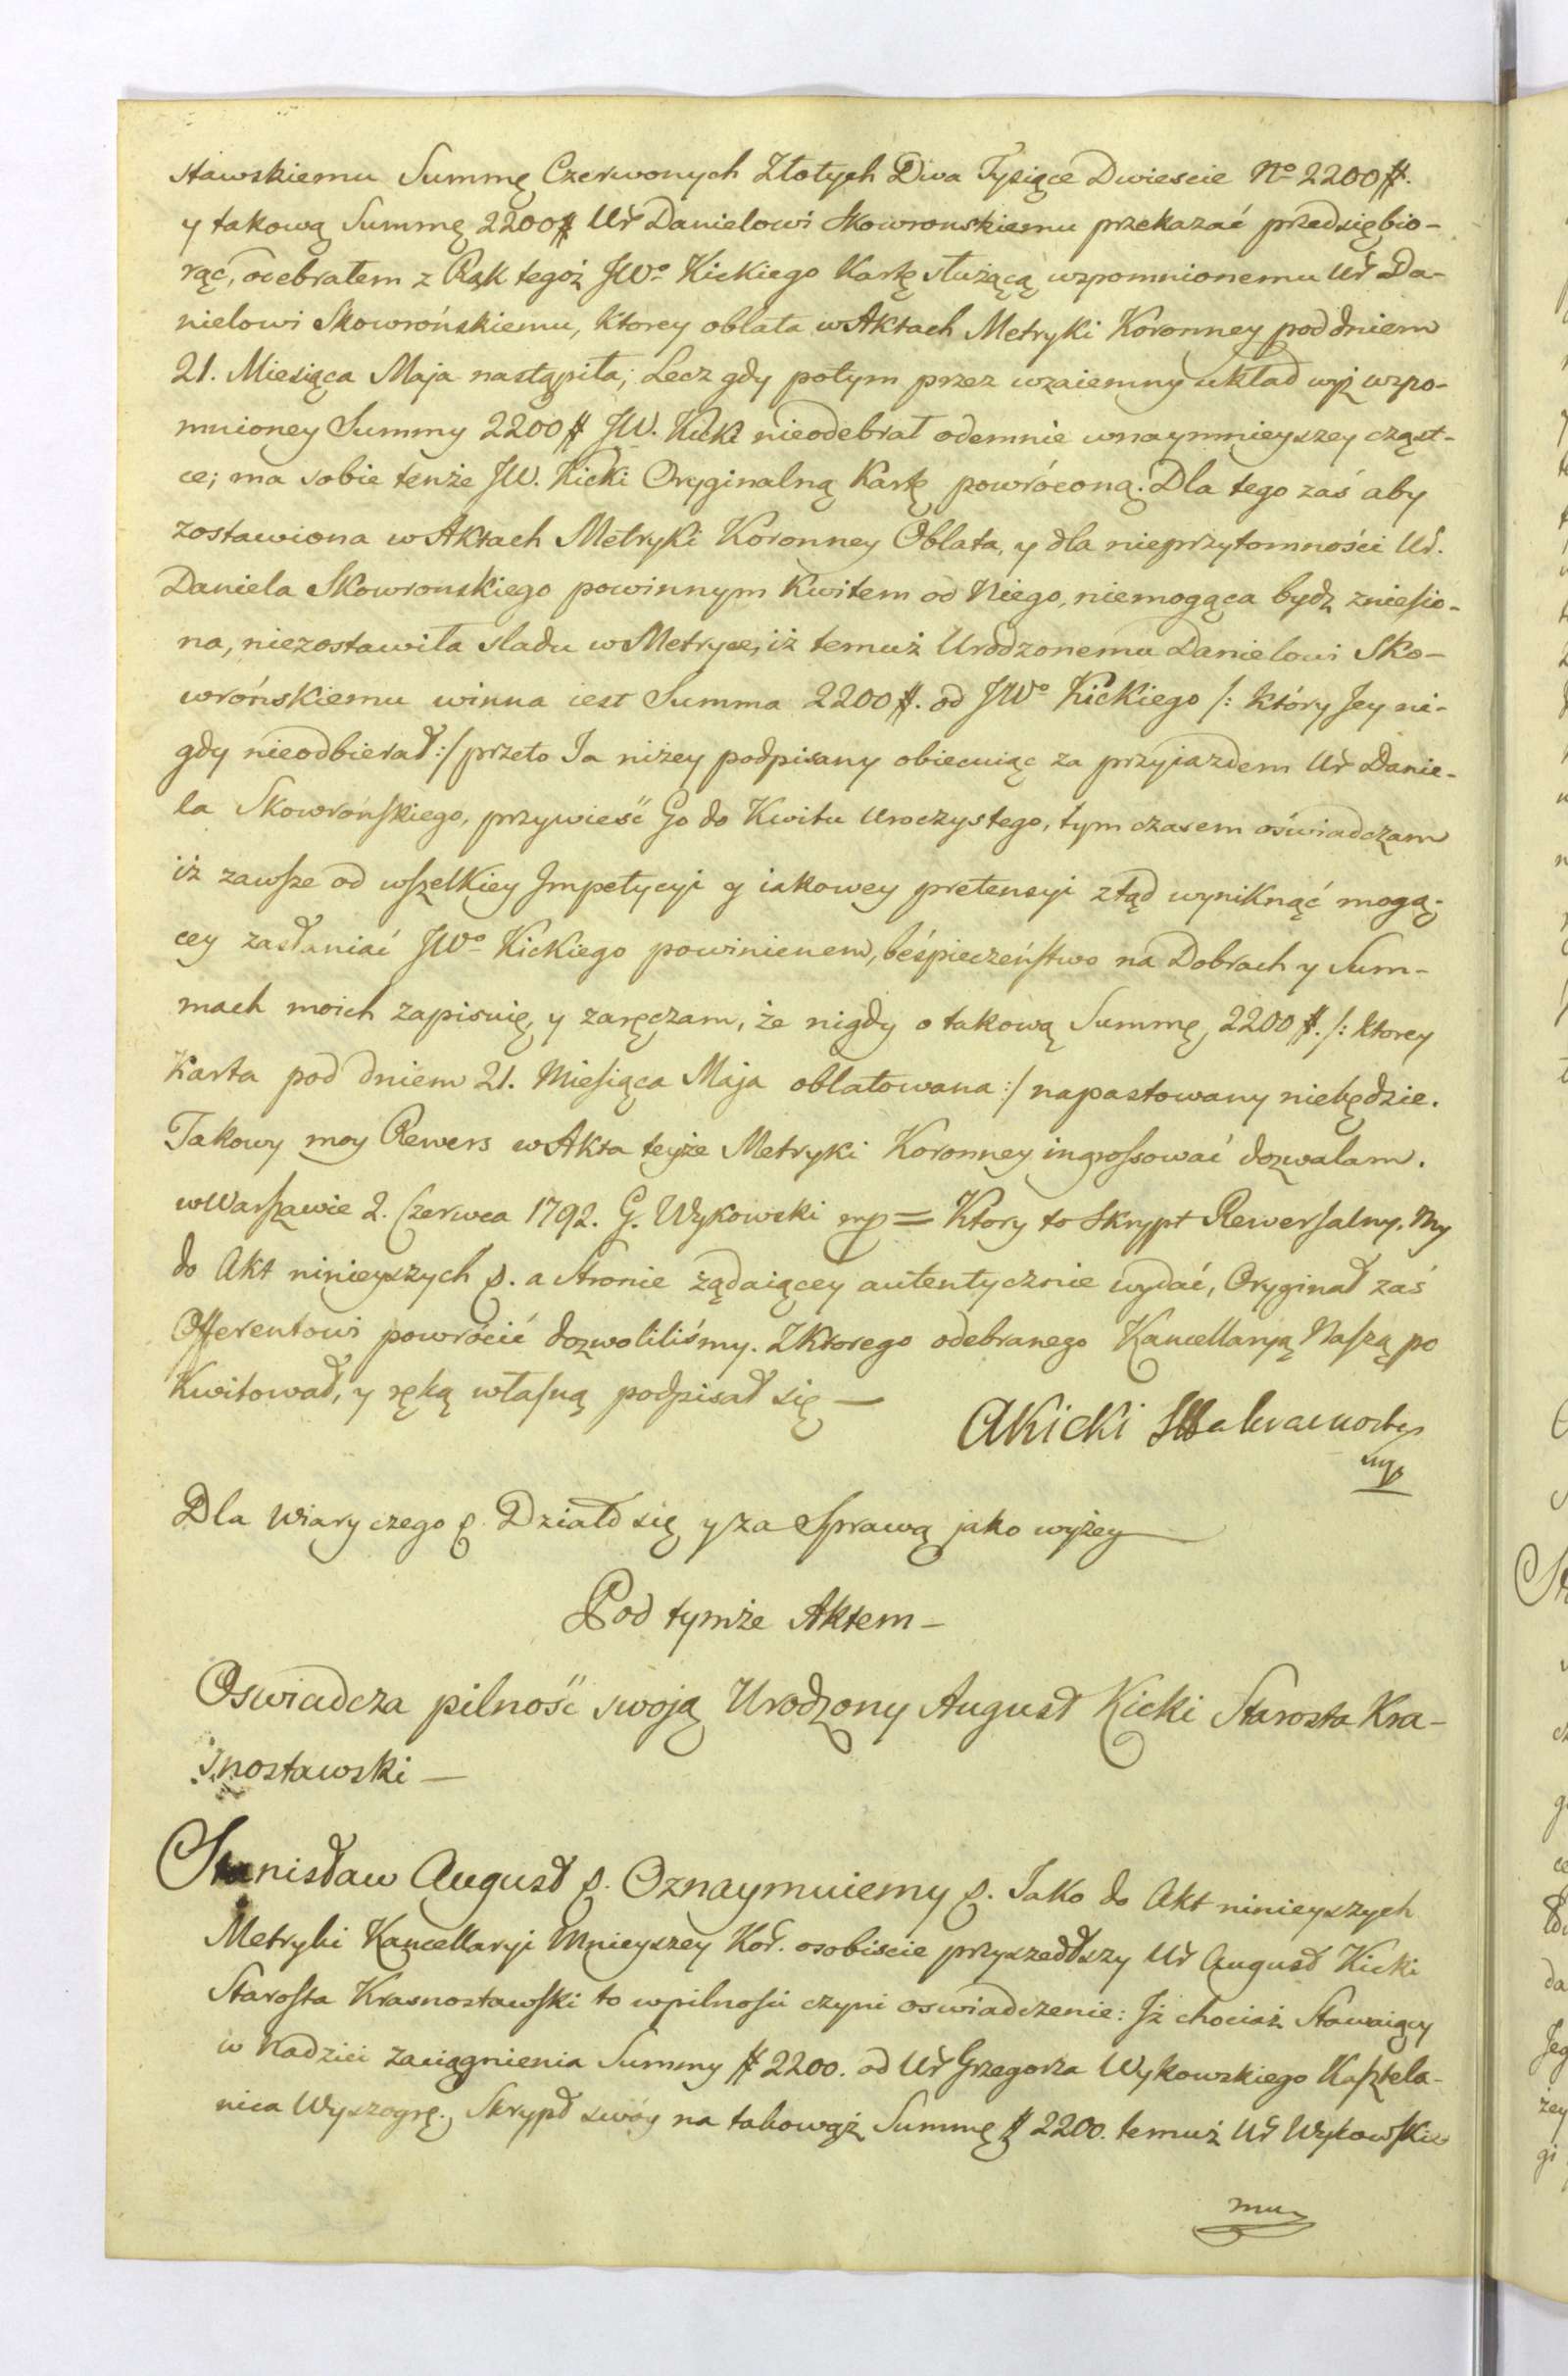 sławskiemu Summę Czerwonych Złotych Dwa Tysiące Dwiescie No 2200 #.
y takową Summę 2200 # Ur Danielowi Skowronskiemu przekazać przedsiębio-
rąc, odebrałem z Rąk tegoż JWo Kickiego Kartę służącą wzpomnionemu Ur Da-
nielowi Skowrońskiemu, ktorey oblata w Aktach Metryki Koronney pod dniem
21. Miesiąca Maja nastąpiła; Lecz gdy potym przez wzaiemny układ wyż wzpo-
mnioney Summy 2200 # JW. Kicki nieodebrał odemnie wnaymnieyszey cząst-
ce; ma sobie tenże JW. Kicki Oryginalną Kartę powróconą. Dla tego zaś aby
zostawiona w Aktach Metryki Koronney Oblata, y dla nieprzytomności Ur.
Daniela Skowronskiego powinnym Kwitem od Niego, niemogąca bydź zniesio-
na, niezostawiła sladu w Metryce, iż temuż Urodzonemu Danielowi Sko-
wrońskiemu winna iest Summa 2200 #. od JWo Kickiego /: który Jey ni-
gdy nieodbierał :/ przeto Ja niżey podpisany obiecuiąc za przyjazdem Ur Danie-
la Skowrońskiego, przywieść Go do Kwitu Uroczystego, tym czasem oświadczam
iż zawsze od wszelkiey Impetycyi y iakowey pretensyi ztąd wyniknąć mogą-
cey zasłaniać JWo Kickiego powinienem, beśpieczeństwo na Dobrach y Sum-
mach moich zapisuię, y zaręczam, że nigdy o takową Summę 2200 #. /: ktorey
Karta pod dniem 21. Miesiąca Maja oblatowana :/ napastowany niebędzie.
Takowy moy Rewers w Akta teyże Metryki Koronney ingrossować dozwalam.
w Warszawie 2. Czerwca 1792. G. Wykowski mp = Ktory to Skrypt Rewersalny. My
do Akt ninieyszych p. a Stronie żądaiącey autentycznie wydać, Oryginał zaś
Offerentowi powrócić dozwoliliśmy. Z Ktorego odebranego Kancellaryą Naszą po
Kwitował, y ręką własną podpisał się —
AKicki
mp
Dla Wiary czego p. Działo się y za Sprawą jako wyżey
Pod tymże Aktem —
Oswiadcza pilność swoją Urodzony August Kicki Starosta Kra-
snostawski —
Stanisław August p. Oznaymuiemy p. Jako do Akt ninieyszych
Metryki Kancellaryi Mnieyszey Kor. osobiscie przyszedłszy Ur August Kicki
Starosta Krasnostawski to w pilności czyni oswiadczenie: Iż chociaż Stawaiący
w Nadziei zaciągnienia Summy # 2200. od Ur Grzegorza Wykowskiego Kasztela-
nica Wyszogrę. Skrypt swóy na takowąż Summę # 2200. temuż Ur Wykowskie
mu